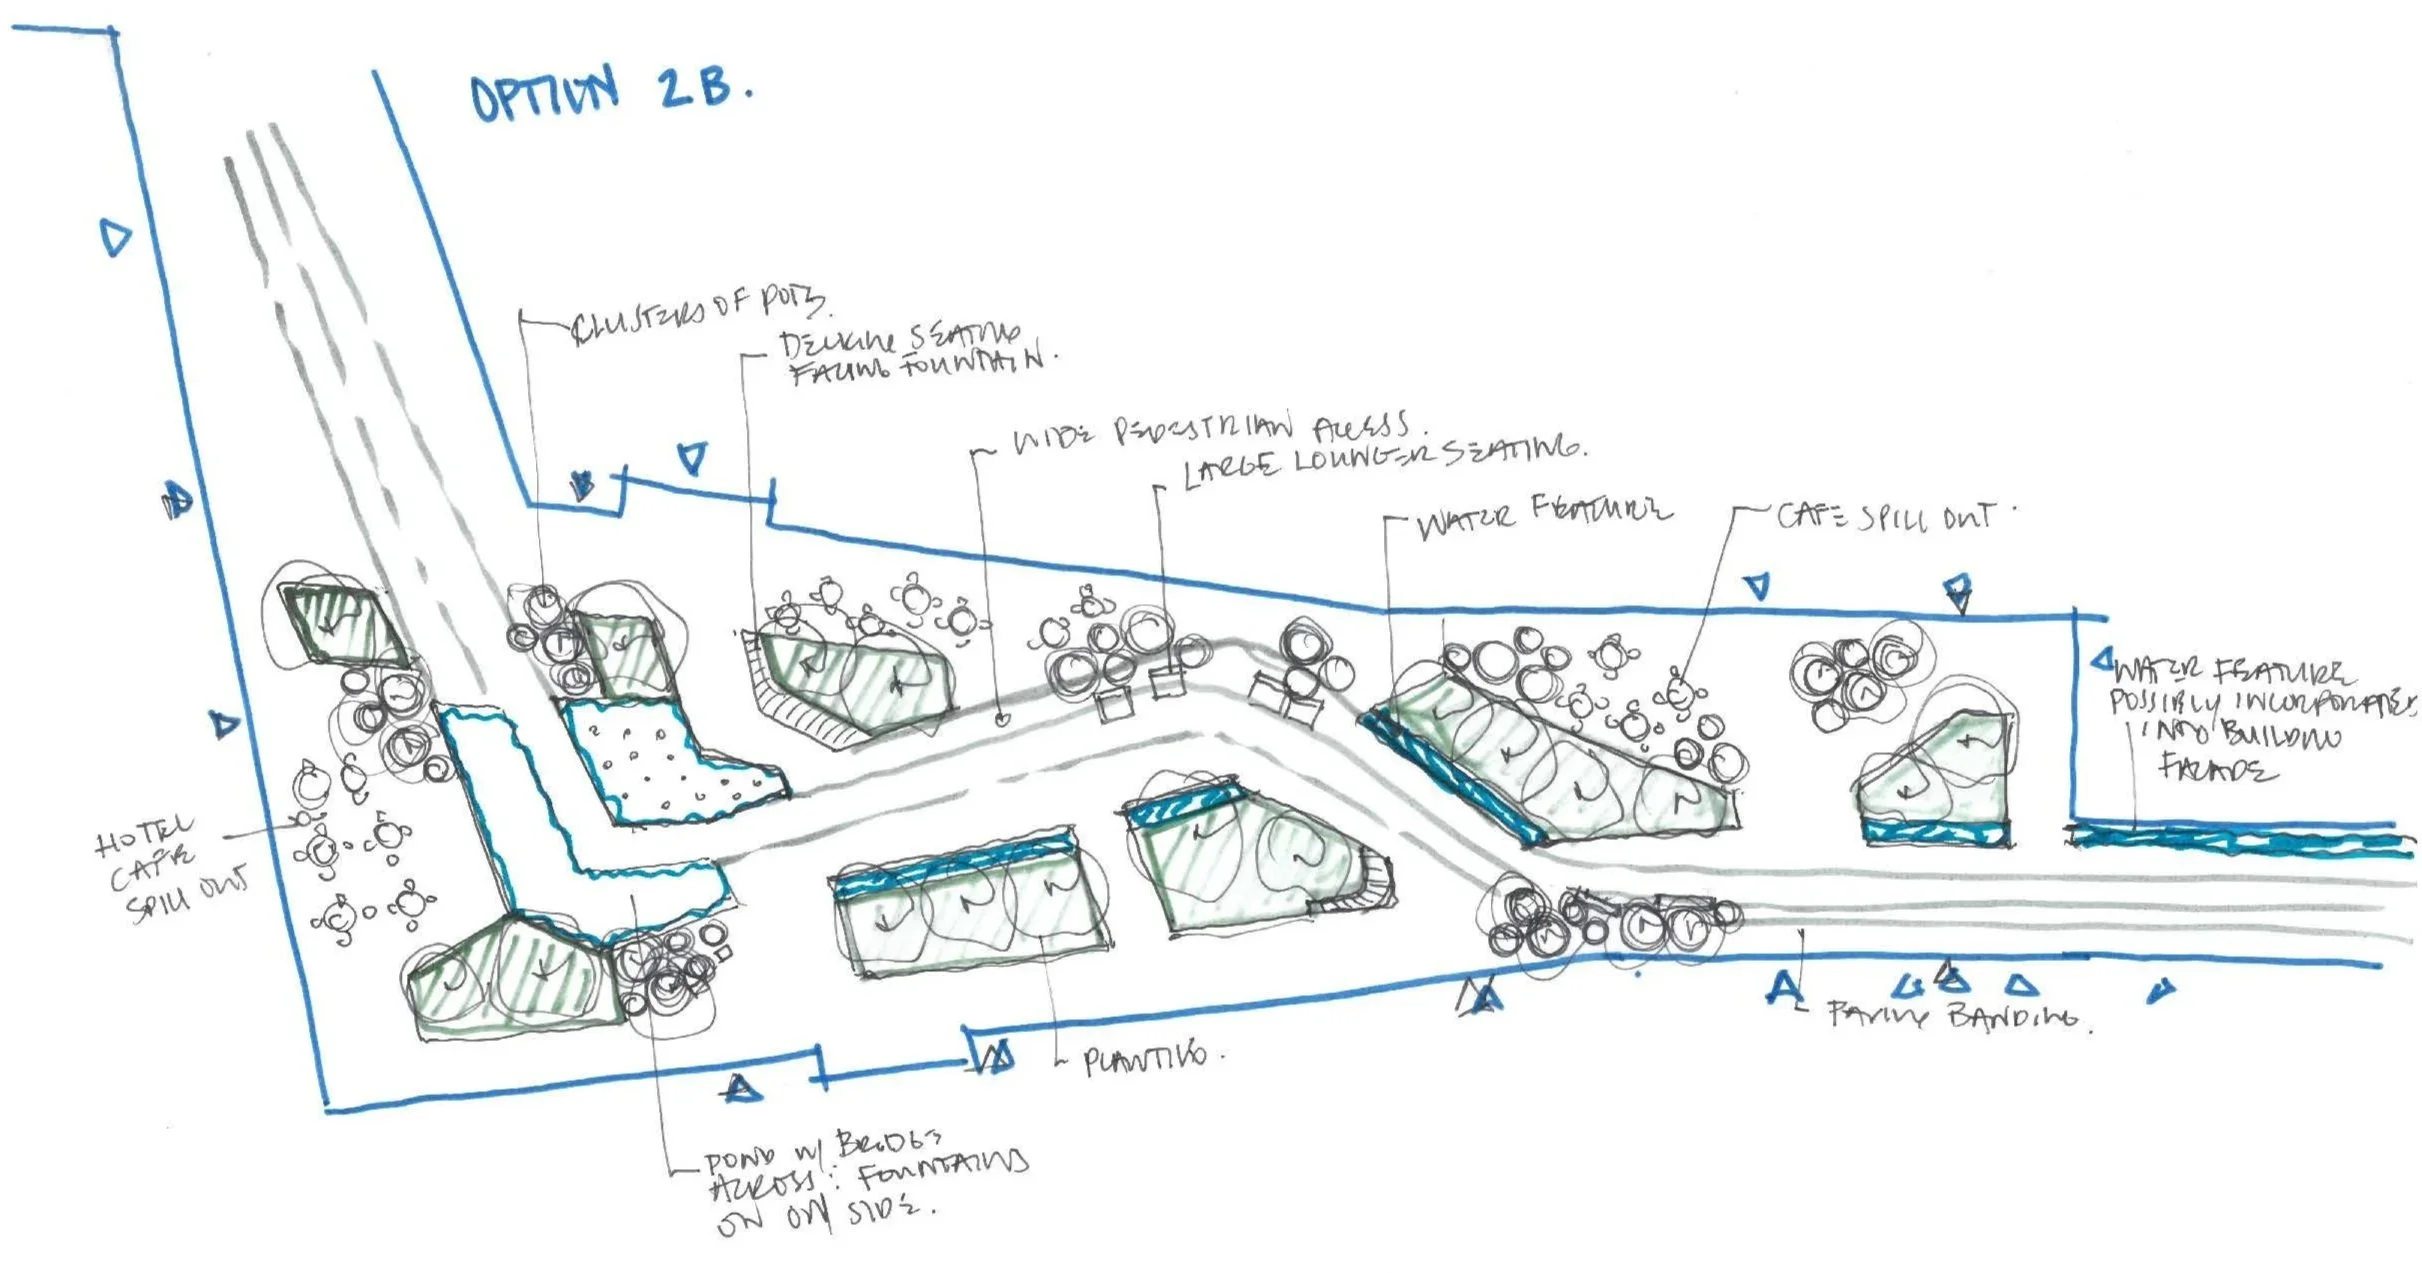 OPTION 2B.
CLUSTERS OF POTS.
DECKING SEATING
FACING FOUNTAIN.
WIDE PEDESTRIAN ACCESS.
LARGE LOUNGER SEATING.
WATER FEATURE
CAFE SPILL OUT.
WATER FEATURE
POSSIBLY INCORPORATED
INTO BUILDING
FACADE
HOTEL
CAFE
SPILL OUT
PAVING BANDING.
PLANTING.
POND W/ BRIDGE
ACROSS: FOUNTAINS
ON ON SIDE.